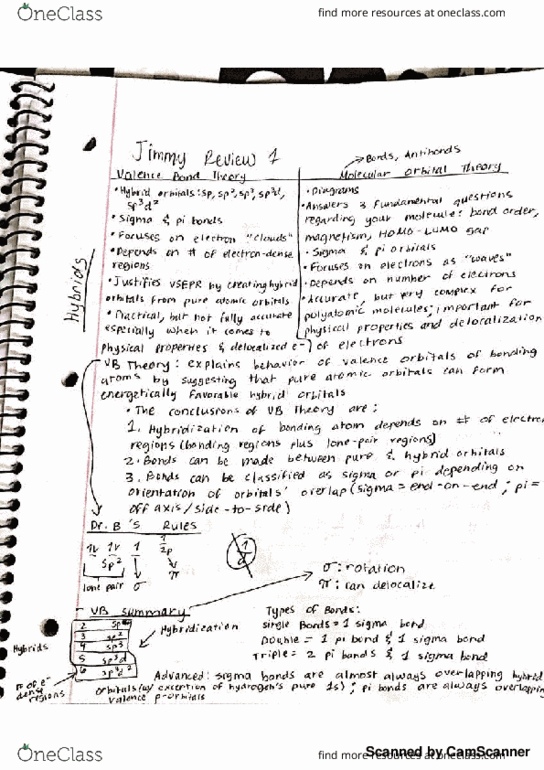 OneClass
find more resources at oneclass.com
Jimmy Review 1
→ Bonds, Antibonds
Valence Bond Theory
Molecular Orbital Theory
Hybrids
• Hybrid orbitals: sp, sp², sp³, sp³d,
sp³d²
• Sigma & pi bonds
• Focuses on electron "clouds"
• Depends on # of electron-dense
regions
• Justifies VSEPR by creating hybrid
orbitals from pure atomic orbitals
• Practical, but not fully accurate
especially when it comes to
physical properties & delocalized e-
• Diagrams
• Answers 3 fundamental questions
regarding your molecule: bond order,
magnetism, HOMO-LUMO gap
• Sigma & pi orbitals
• Focuses on electrons as "waves"
• Depends on number of electrons
• Accurate, but very complex for
polyatomic molecules; important for
physical properties and delocalization
of electrons
VB Theory: explains behavior of valence orbitals of bonding
atoms by suggesting that pure atomic orbitals can form
energetically favorable hybrid orbitals
• The conclusions of VB Theory are:
1. Hybridization of bonding atom depends on # of electron
regions (bonding regions plus lone-pair regions)
2. Bonds can be made between pure & hybrid orbitals
3. Bonds can be classified as sigma or pi depending on
orientation of orbitals' overlap (sigma = end-on-end; pi =
off axis/side-to-side)
Dr. B's Rules
1v 1v 1 1
sp² 2p
lone pair σ π
σ: rotation
π: can delocalize
VB summary
2 sp
3 sp²
4 sp³
5 sp³d
6 sp³d²
Hybrids
← Hybridization
# of e- dense regions
Types of Bonds:
Single Bonds = 1 sigma bond
Double = 1 pi bond & 1 sigma bond
Triple = 2 pi bonds & 1 sigma bond
Advanced: sigma bonds are almost always overlapping hybrid
orbitals (w/ exception of hydrogen's pure 1s); pi bonds are always overlapping
valence p-orbitals
Scanned by CamScanner
OneClass
find more resources at oneclass.com